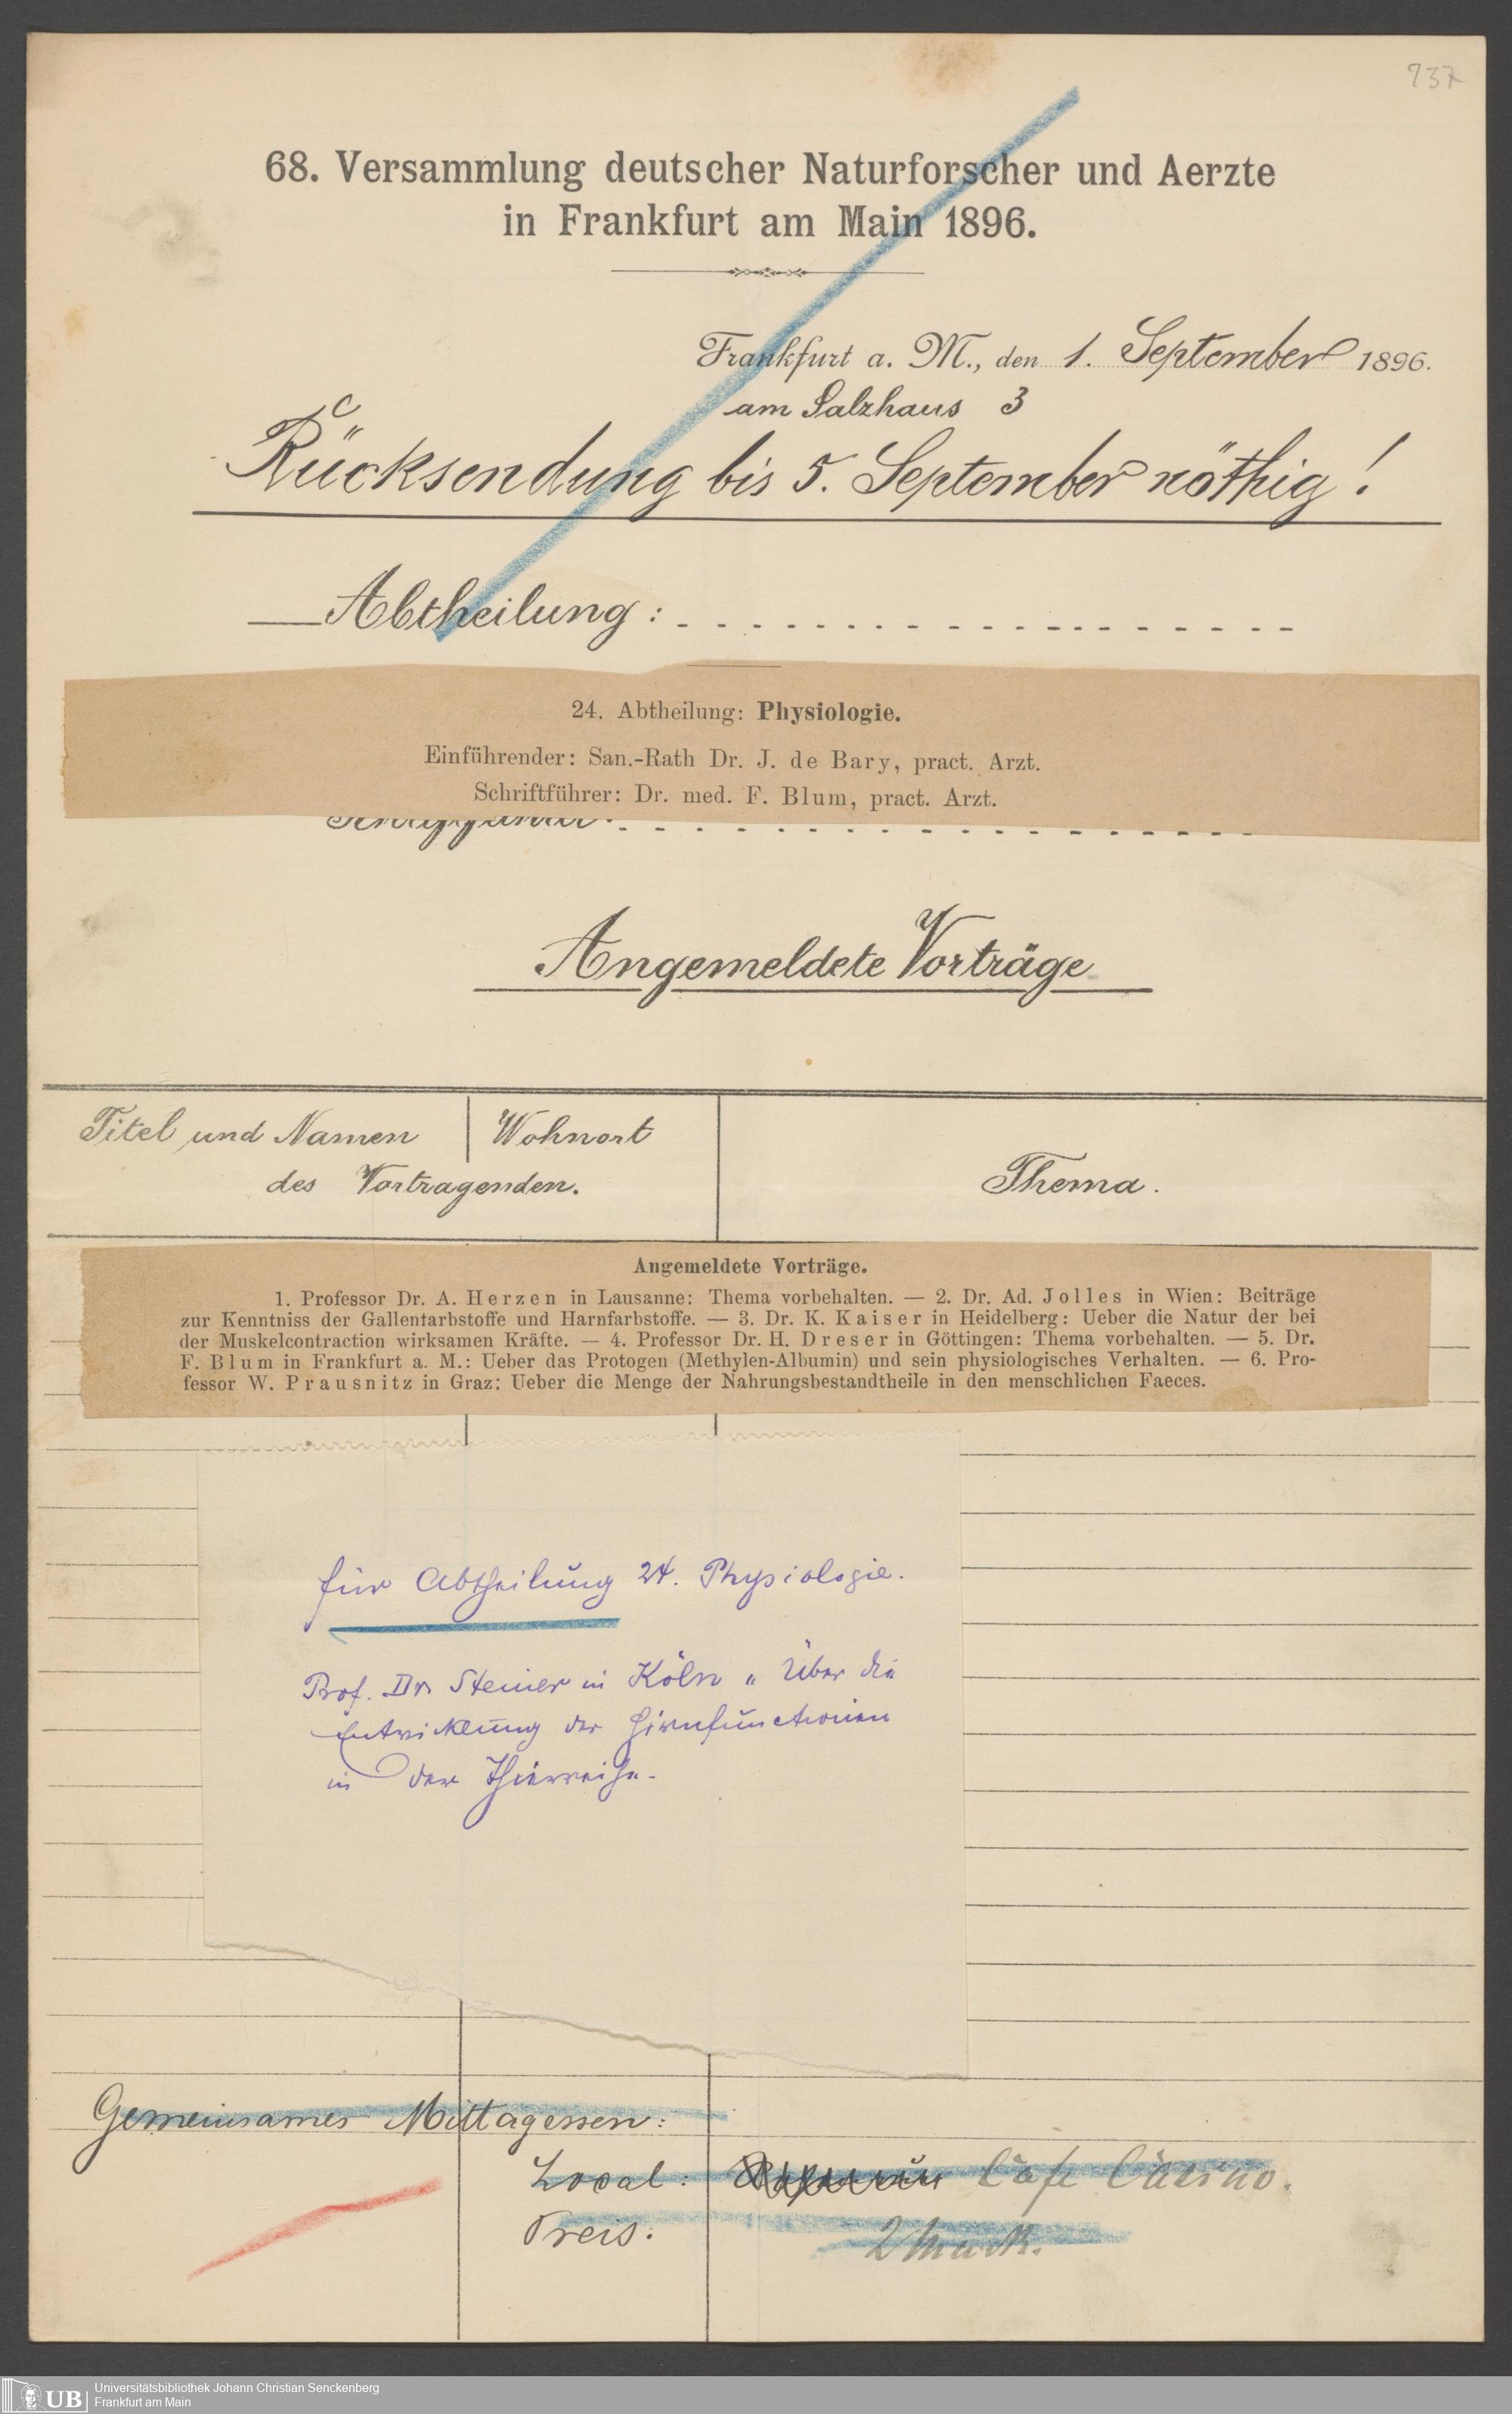 237
68. Versammlung deutscher Naturforscher und Aerzte
in Frankfurt am Main 1896.
Frankfurt a. M., den 1. September 1896.
am Salzhaus 3
Rücksendung bis 5. September nöthig!
Abtheilung:
24. Abtheilung: Physiologie.
Einführender: San.-Rath Dr. J. de Bary, pract. Arzt.
Schriftführer: Dr. med. F. Blum, pract. Arzt.
Angemeldete Vorträge
Titel und Namen
Wohnort
des Vortragenden.
Thema.
Angemeldete Vorträge.
1. Professor Dr. A. Herzen in Lausanne: Thema vorbehalten. — 2. Dr. Ad. Jolles in Wien: Beiträge
zur Kenntniss der Gallenfarbstoffe und Harnfarbstoffe. — 3. Dr. K. Kaiser in Heidelberg: Ueber die Natur der bei
der Muskelcontraction wirksamen Kräfte. — 4. Professor Dr. H. Dreser in Göttingen: Thema vorbehalten. — 5. Dr.
F. Blum in Frankfurt a. M.: Ueber das Protogen (Methylen-Albumin) und sein physiologisches Verhalten. — 6. Pro-
fessor W. Prausnitz in Graz: Ueber die Menge der Nahrungsbestandtheile in den menschlichen Faeces.
für Abtheilung 24. Physiologie.
Prof. Dr. Steiner in Köln „ Über die
Entwicklung der Hirnfunctionen
in der Thierreihe.
Gemeinsames Mittagessen:
Local: Café Casino.
Preis: 2 Mark.
UB
Universitätsbibliothek Johann Christian Senckenberg
Frankfurt am Main